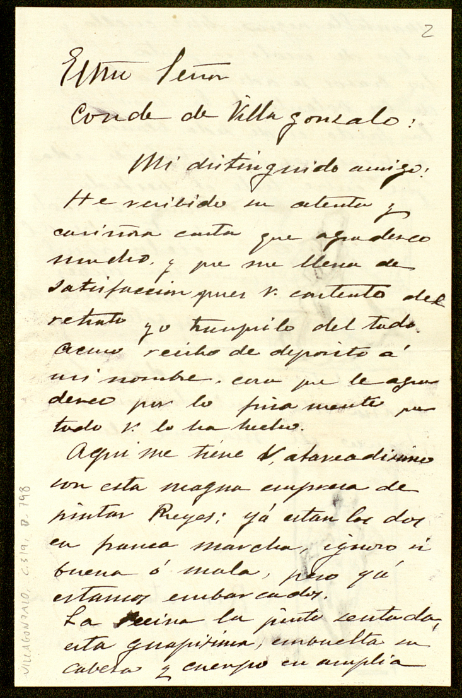 2
Exmo Señor
Conde de Villagonzalo:
Mi distinguido amigo:
He recibido su atenta y
cariñosa carta que agradezco
mucho, y que me llena de
satisfaccion pues V. contento del
retrato yo tranquilo del todo.
Acuso recibo de deposito á
mi nombre, cosa que le agra
dezco por lo finamente que
todo V. lo ha hecho.
Aqui me tiene V, atareadisimo
con esta magna empresa de
pintar Reyes; yá estan los dos
en franca marcha, ignoro si
buena ó mala, pero yá
estamos embarcados.
La Reina la pinto sentada,
esta guapisima, embuelta su
cabeza y cuerpo en amplia
VILLAGONZALO, C.319, D.798